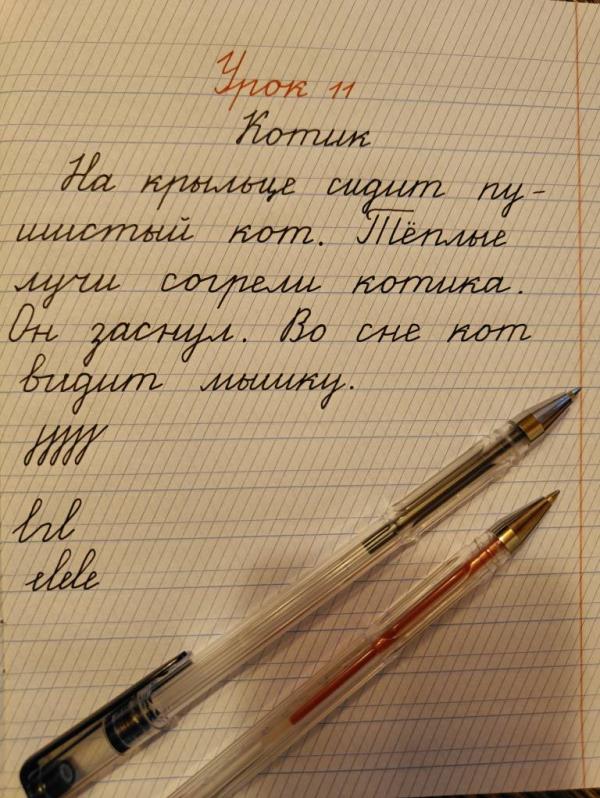 Урок 11
Котик
На крыльце сидит пу-
шистый кот. Тёплые
лучи согрели котика.
Он заснул. Во сне кот
видит мышку.